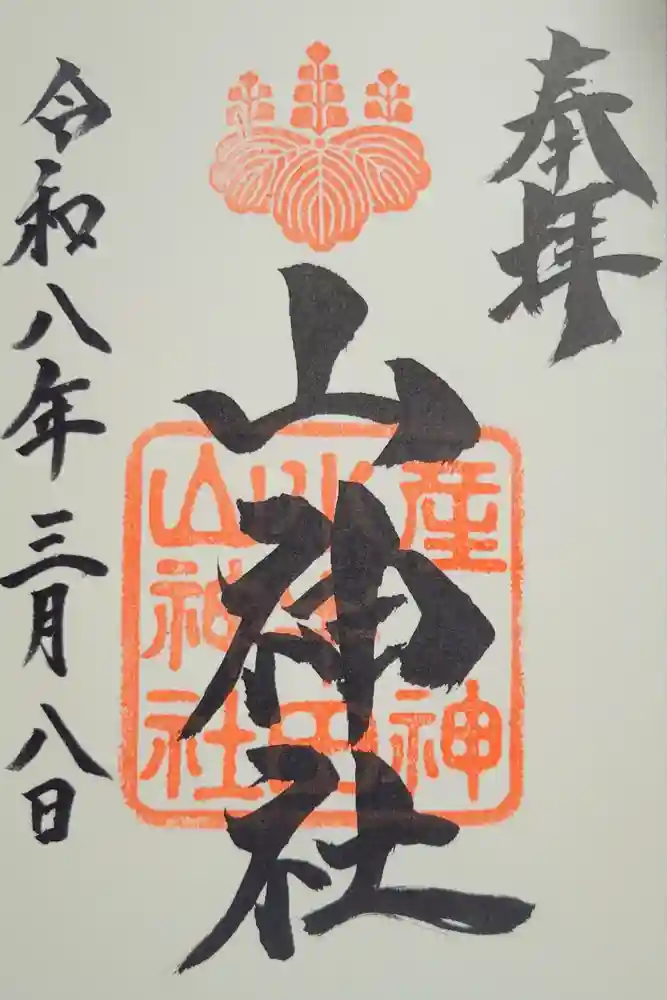 奉拝
山神社
令和八年三月八日
産神
山神社